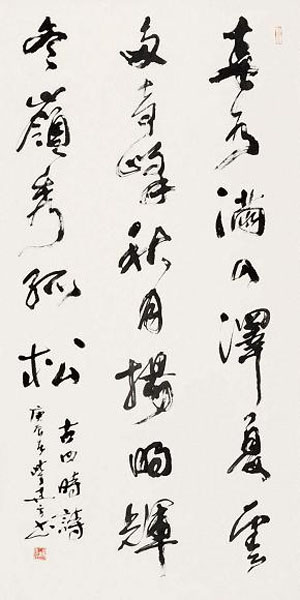 春水滿四澤夏雲
多奇峰秋月揚明輝
冬嶺秀孤松
古四時詩
庚辰